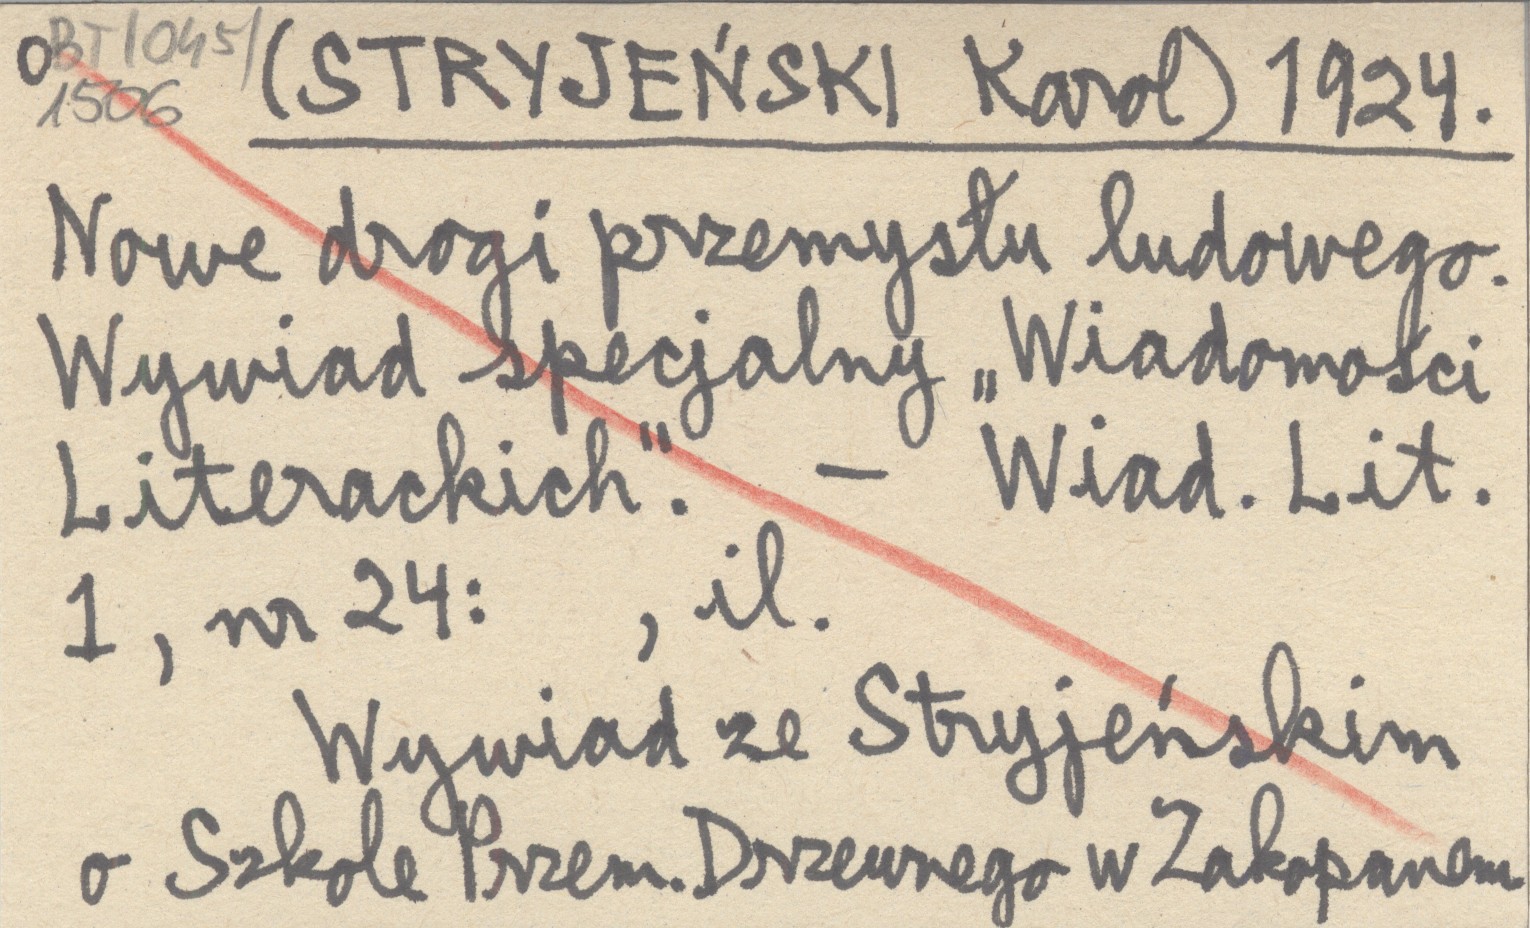 o BT/045/
1506
(STRYJEŃSKI Karol) 1924.
Nowe drogi przemysłu ludowego.
Wywiad specjalny „Wiadomości
Literackich". – Wiad. Lit.
1, nr 24: , il.
Wywiad ze Stryjeńskim
o Szkole Przem. Drzewnego w Zakopanem